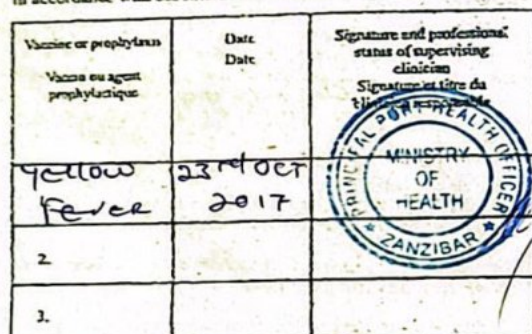 Vaccine or prophylaxis
Vaccin ou agent
prophylactique
Date
Date
Signature and professional
status of supervising
clinician
Signature et titre du
Yellow
Fever
23rd OCT
2017
PRINCIPAL PORT HEALTH OFFICER
MINISTRY
OF
HEALTH
ZANZIBAR
2.
3.